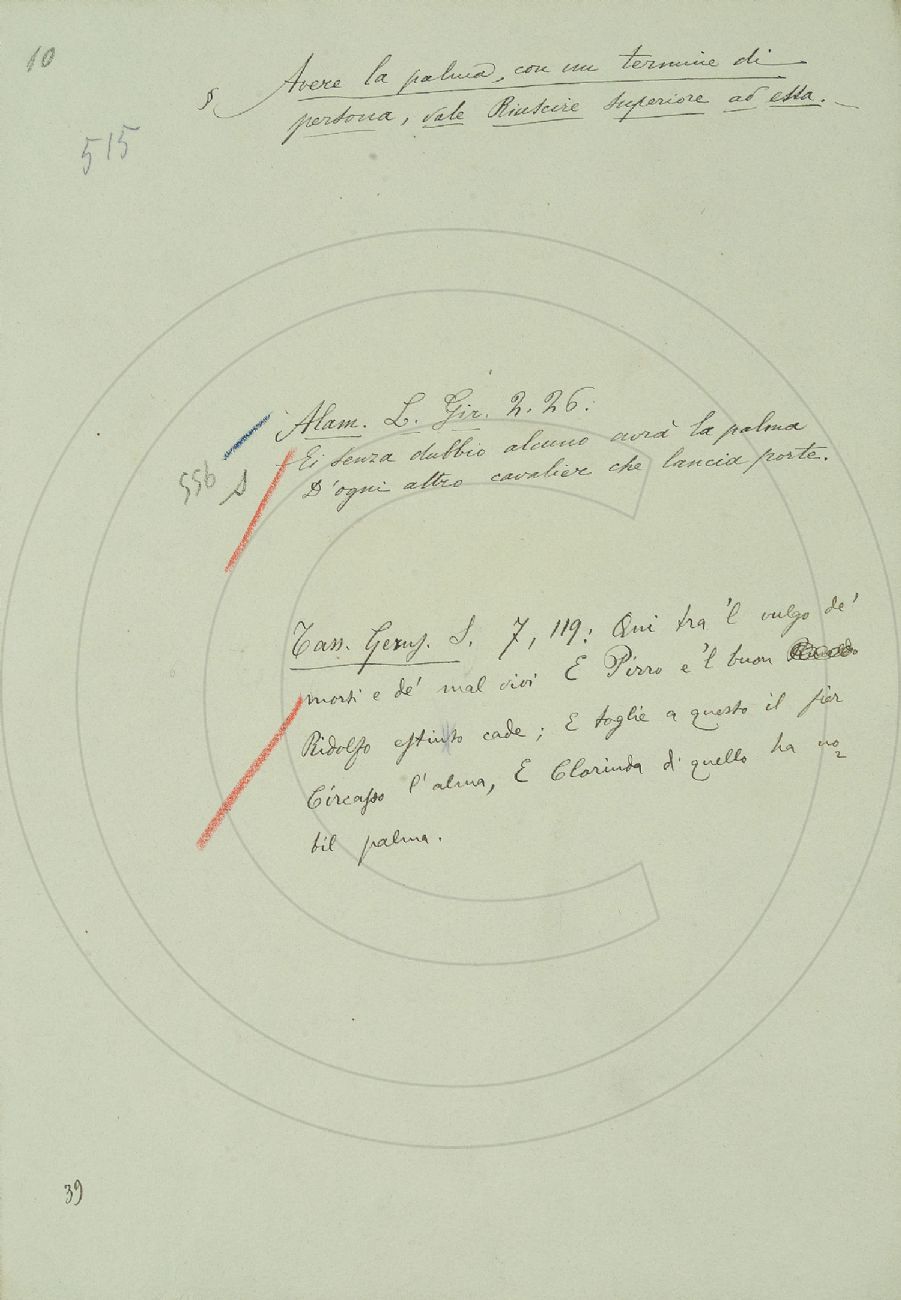 10
§ Avere la palma, con un termine di
persona, vale Riuscire superiore ad essa.
515
Alam. L. Gir. 2. 26:
Ei senza dubbio alcuno avrà la palma
D'ogni altro cavalier che lancia porte.
556
Tass. Gerus. L. 7, 119: Qui tra 'l vulgo de'
morti e de' mal vivi E Pirro e 'l buon
Ridolfo estinto cade; E toglie a questo il fier
Circasso l'alma, E Clorinda di quello ha no=
bil palma.
39